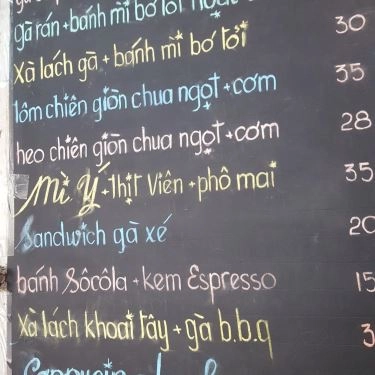 gà rán + bánh mì bơ tỏi
Xà lách gà + bánh mì bơ tỏi 30
tôm chiên giòn chua ngọt + cơm 35
heo chiên giòn chua ngọt + cơm 28
Mì Ý + thịt viên + phô mai 35
Sandwich gà xé 20
bánh Sôcôla + kem Espresso 15
Xà lách khoai tây + gà b.b.q 3